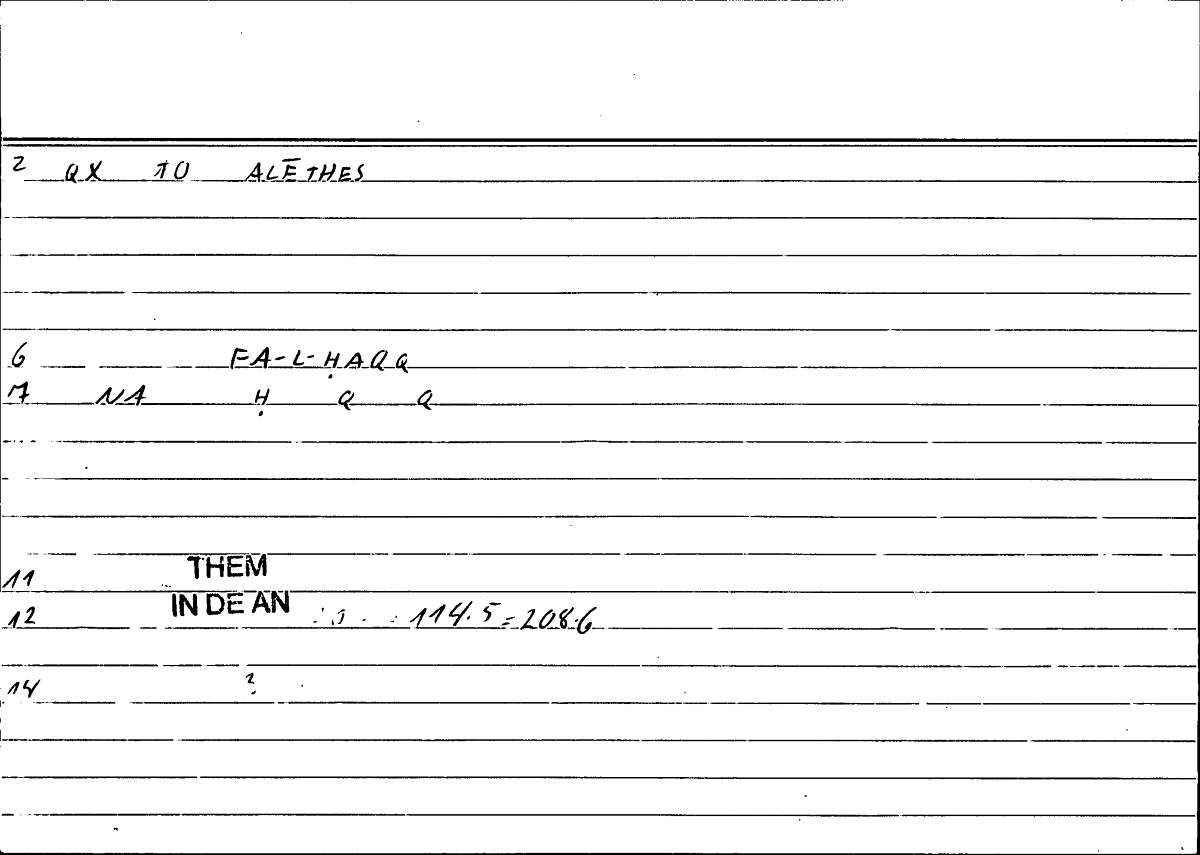 2 QX TO ALĒTHES
6 FA-L-ḤAQQ
7 NA Ḥ Q Q
11 THEM
12 IN DE AN 114.5=208.6
14 ?